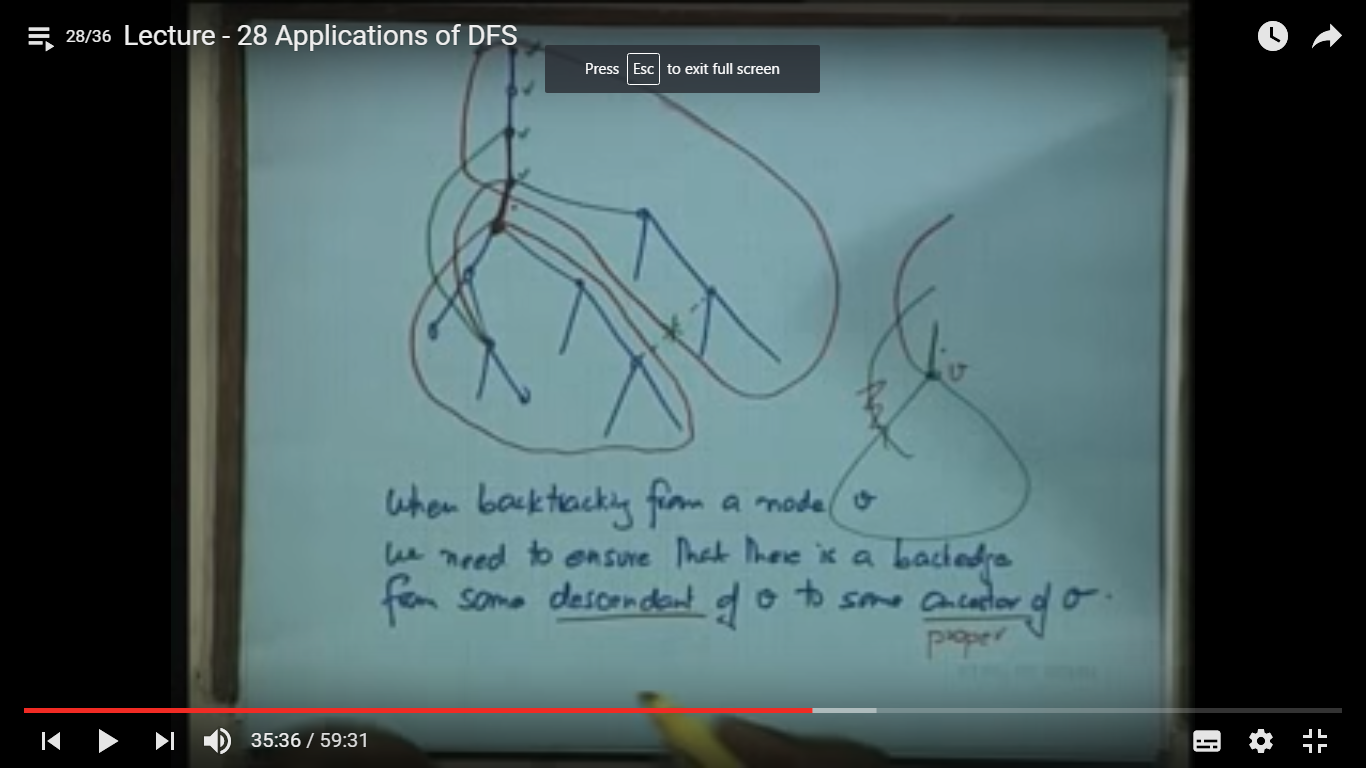 28/36 Lecture - 28 Applications of DFS
Press Esc to exit full screen
v
When backtracking from a node v
we need to ensure that there is a backedge
from some descendant of v to some ancestor of v.
proper
35:36 / 59:31